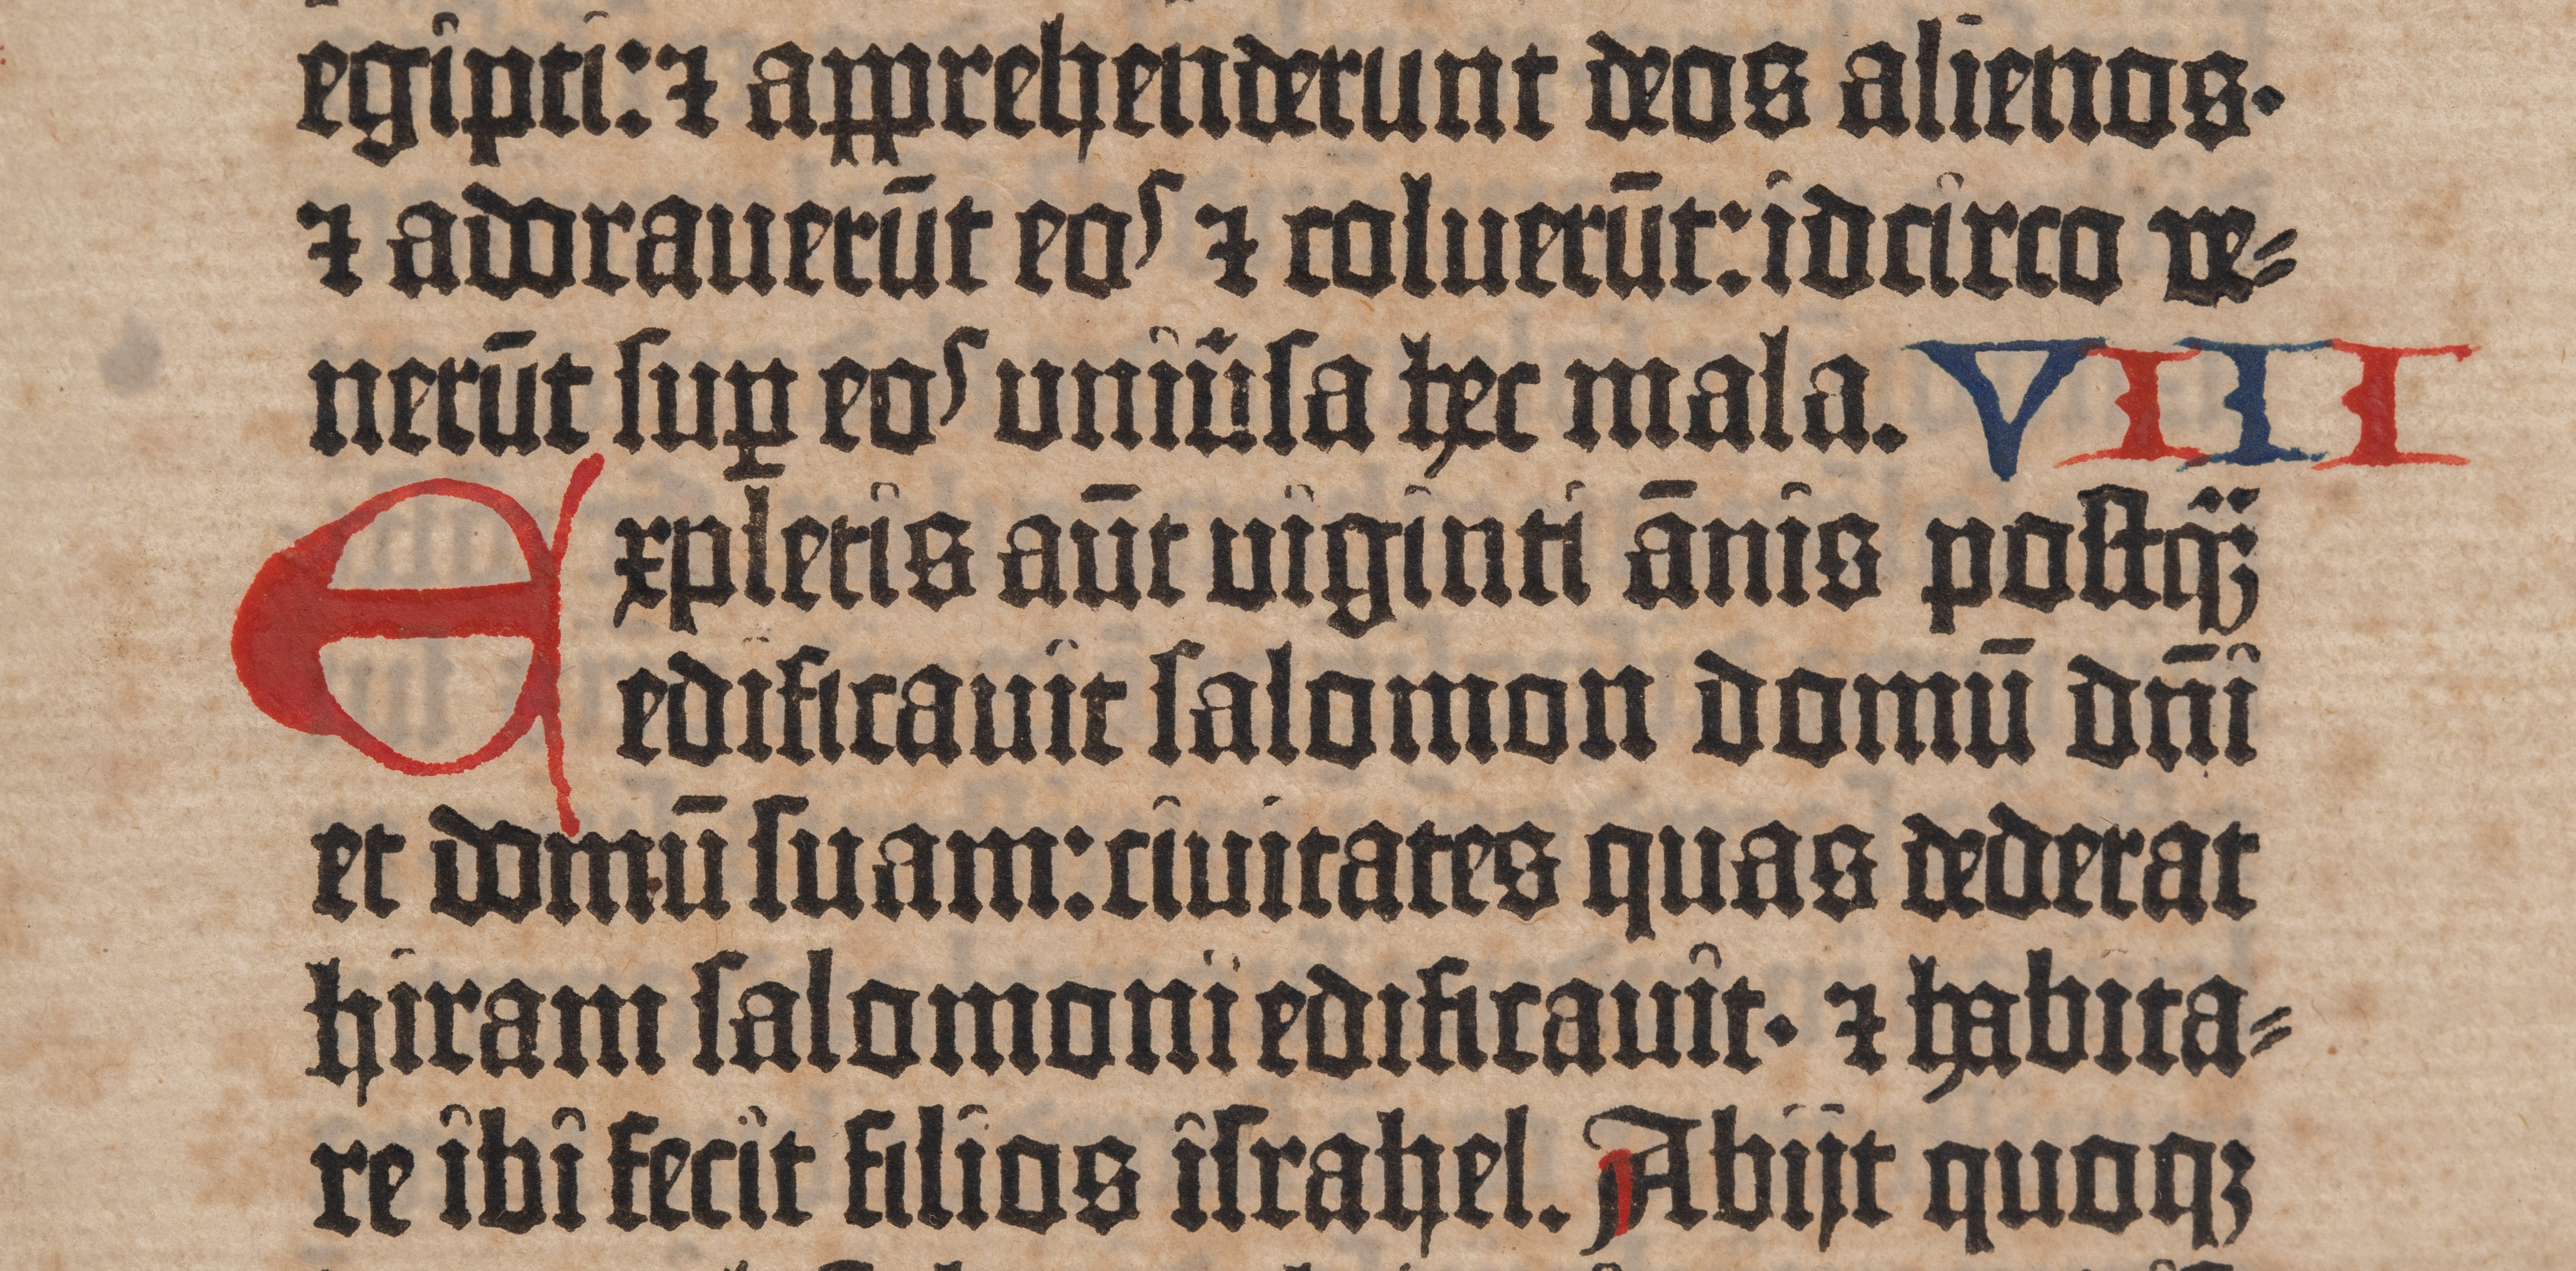 egipti: ⁊ apprehenderunt deos alienos·
⁊ adorauerūt eos ⁊ coluerūt: idcirco ve⸗
nerūt suꝑ eos uniũsa hec mala. VIII
Expletis aūt viginti ānis postq̈ꝫ
edificauit salomon domū dn̄i
et domū suam: ciuitates quas dederat
hiram salomoni edificauit· ⁊ habita⸗
re ibi fecit filios israhel. Abijt quoqꝫ